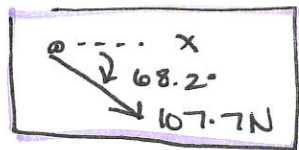 x
68.2°
107.7N